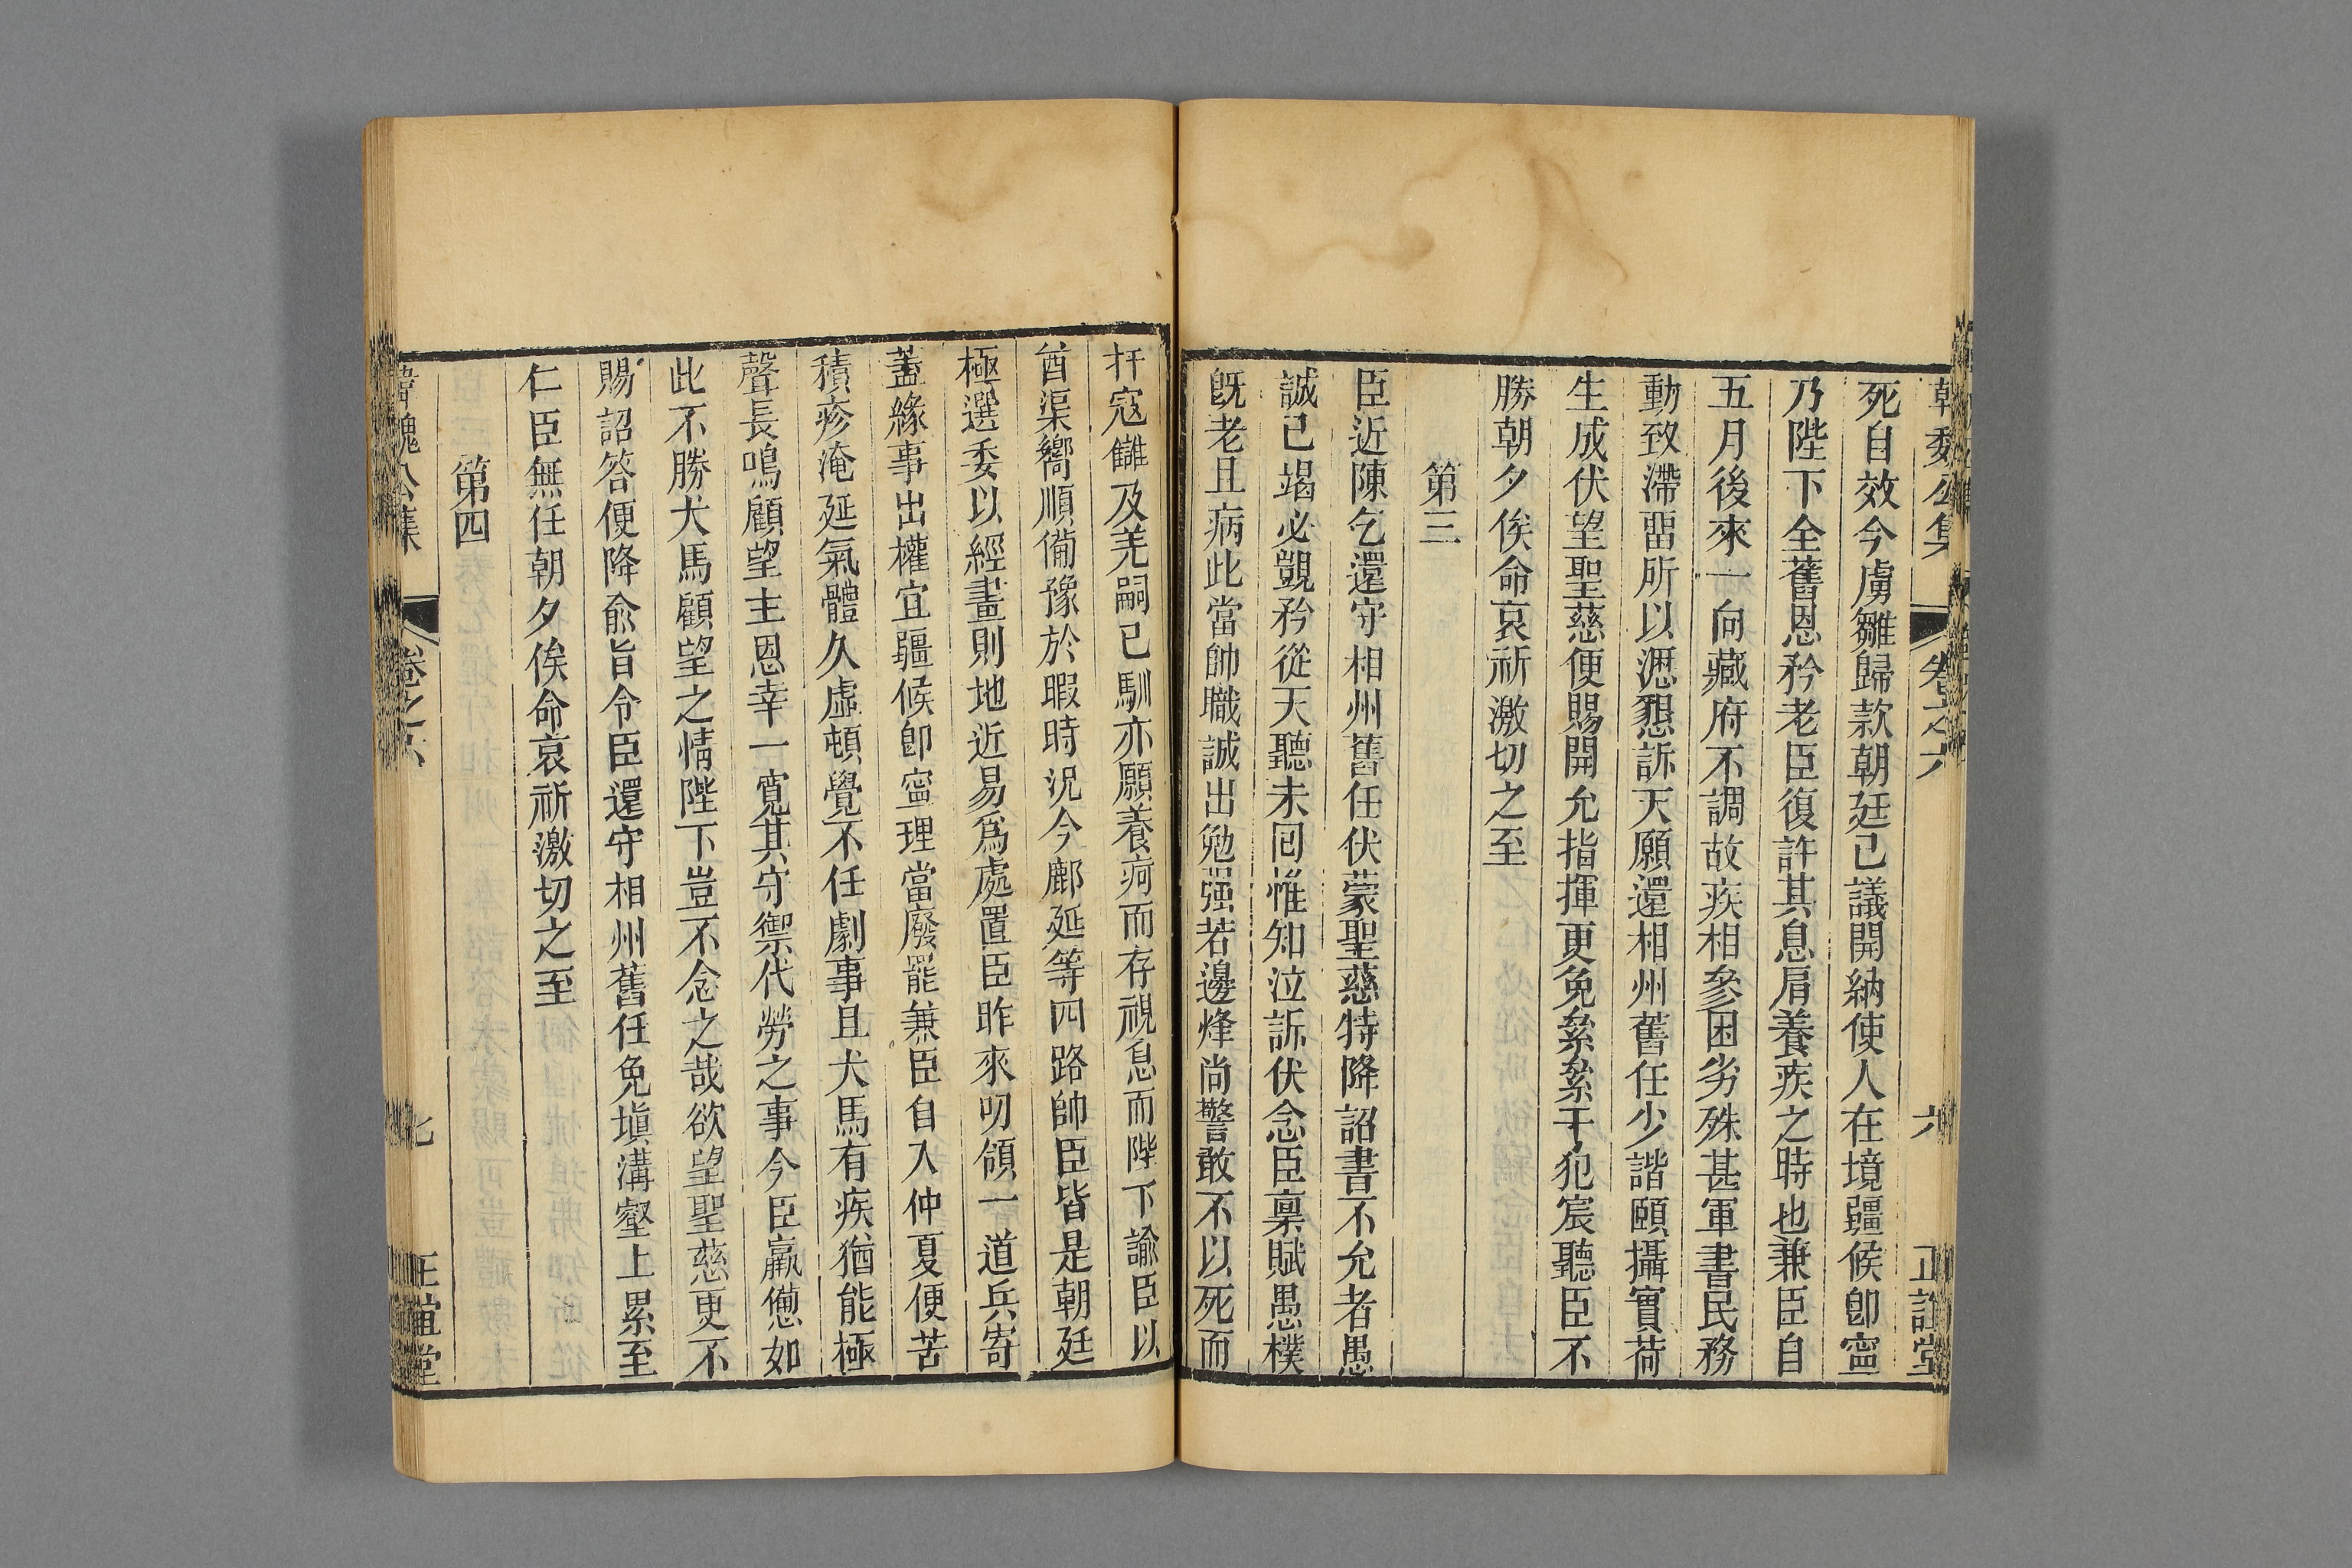 韓魏公集 卷之六 六 正誼堂
死自效今虜雛歸款朝廷已議開納使人在境疆候卽寍
乃陛下全舊恩矜老臣復許其息肩養疾之時也兼臣自
五月後來一向藏府不調故疾相參困劣殊甚軍書民務
動致滯畱所以瀝懇訴天願還相州舊任少諧頤攝實荷
生成伏望聖慈便賜開允指揮更免絫絫干犯宸聽臣不
勝朝夕俟命哀祈激切之至
第三
臣近陳乞還守相州舊任伏蒙聖慈特降詔書不允者愚
誠已竭必覬矜從天聽未回惟知泣訴伏念臣稟賦愚樸
旣老且病此當帥職誠出勉强若邊烽尚警敢不以死而
扞寇讎及羌嗣已馴亦願養疴而存視息而陛下諭臣以
酋渠嚮順備豫於暇時況今鄜延等四路帥臣皆是朝廷
極選委以經畫則地近易爲處置臣昨來叨領一道兵寄
蓋緣事出權宜疆候卽寍理當廢罷兼臣自入仲夏便苦
積疹淹延氣體久虛頓覺不任劇事且犬馬有疾猶能極
聲長鳴顧望主恩幸一寬其守禦代勞之事今臣羸憊如
此不勝犬馬顧望之情陛下豈不念之哉欲望聖慈更不
賜詔答便降俞旨令臣還守相州舊任免塡溝壑上累至
仁臣無任朝夕俟命哀祈激切之至
第四
韓魏公集 卷之六 七 正誼堂